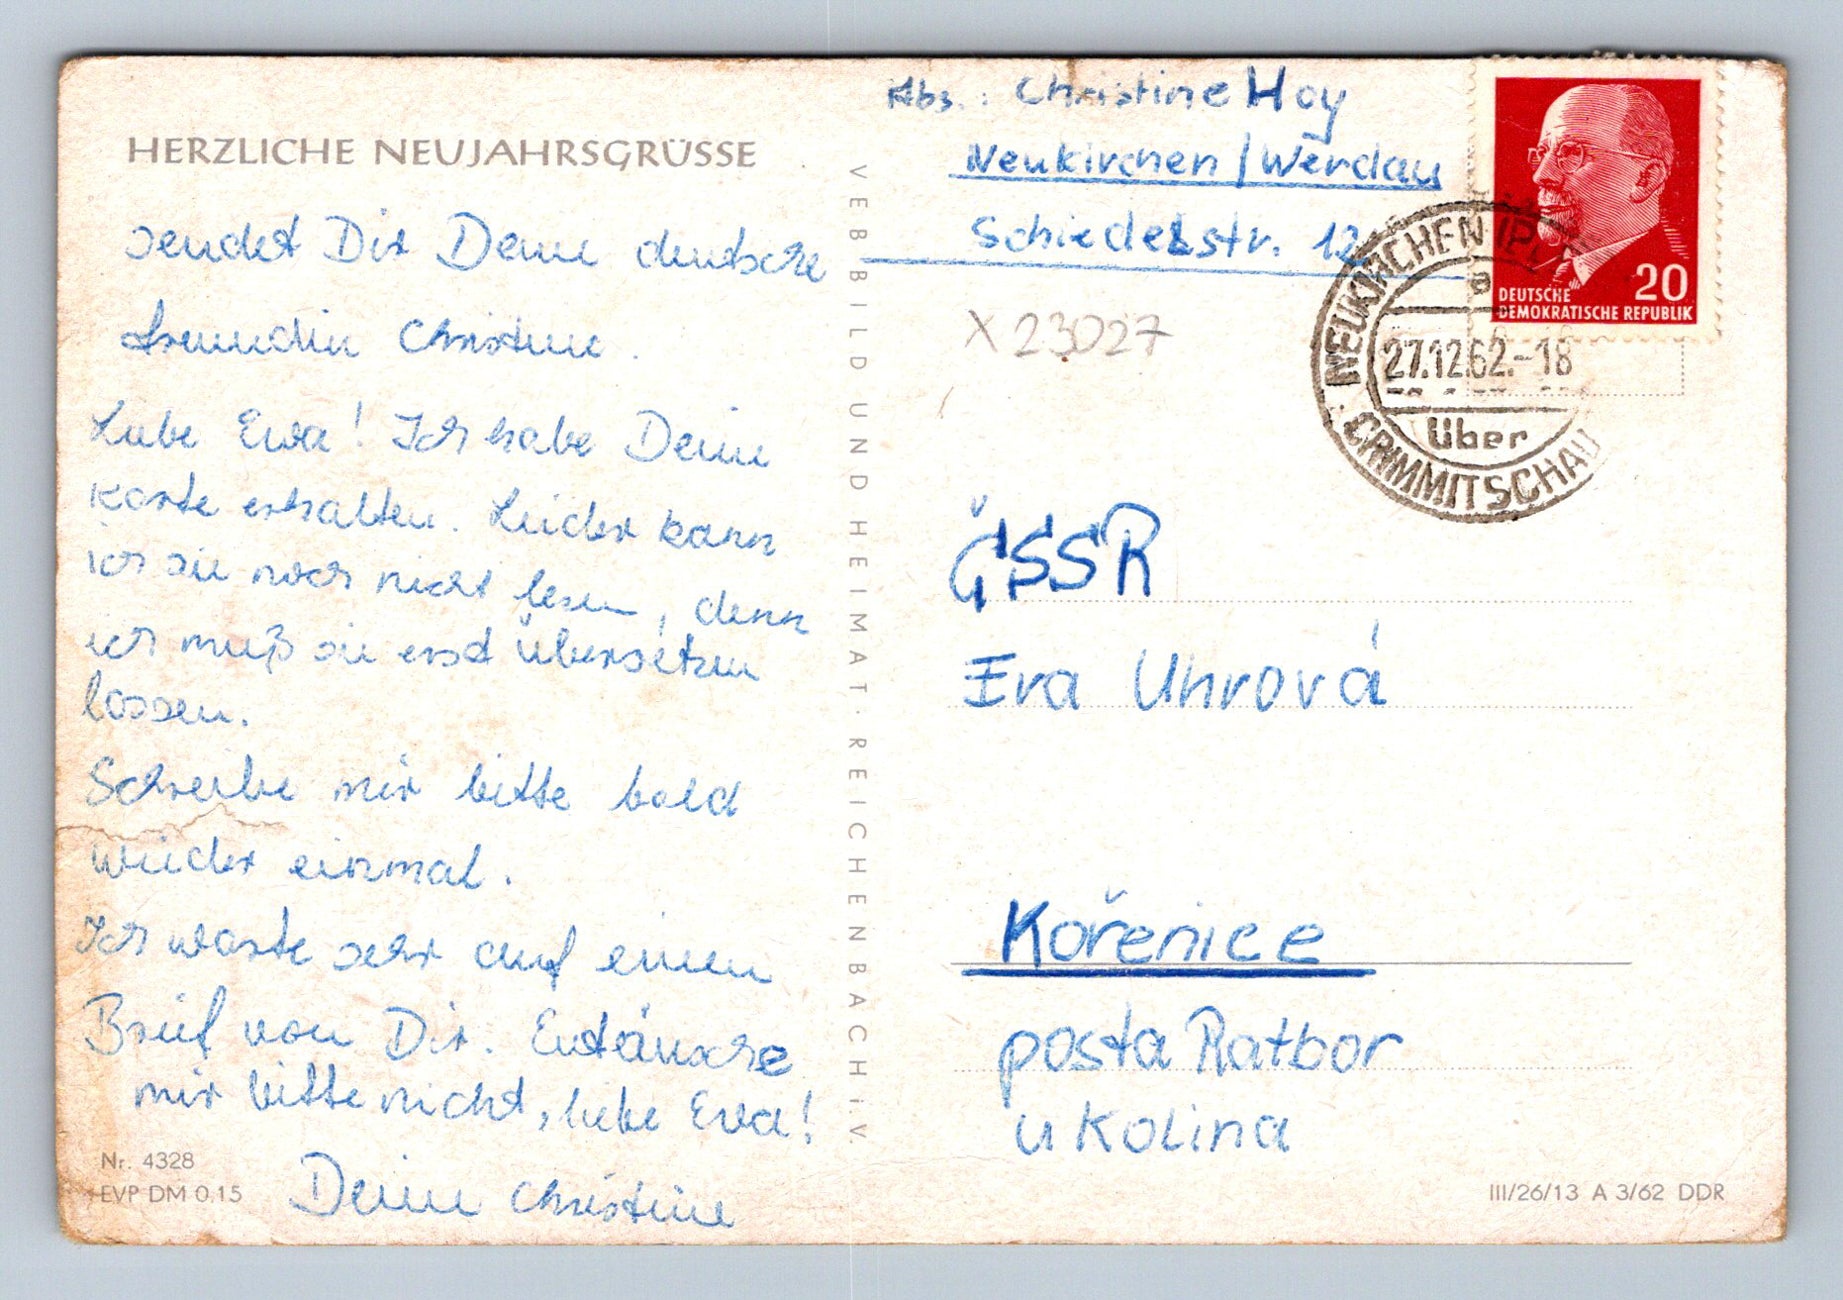 HERZLICHE NEUJAHRSGRÜSSE
sendet Dir Deine deutsche
Freundin Christine.
Liebe Ewa! Ich habe Deine
Karte erhalten. Leider kann
ich sie noch nicht lesen, denn
ich muß sie erst übersetzen
lassen.
Schreibe mir bitte bald
wieder einmal.
Ich warte sehr auf einen
Brief von Dir. Entäusche
mir bitte nicht, liebe Eva!
Deine Christine
Nr. 4328
EVP DM 0,15
VEB BILD UND HEIMAT · REICHENBACH i. V.
Abs.: Christine Hoy
Neukirchen / Werdau
Schiedelstr. 12
X 23027
20
DEUTSCHE
DEMOKRATISCHE REPUBLIK
NEUKIRCHEN
a
27.12.62.-18
über
CRIMMITSCHAU
ČSSR
Eva Uhrová
Kořenice
posta Ratbor
u Kolina
III/26/13 A 3/62 DDR